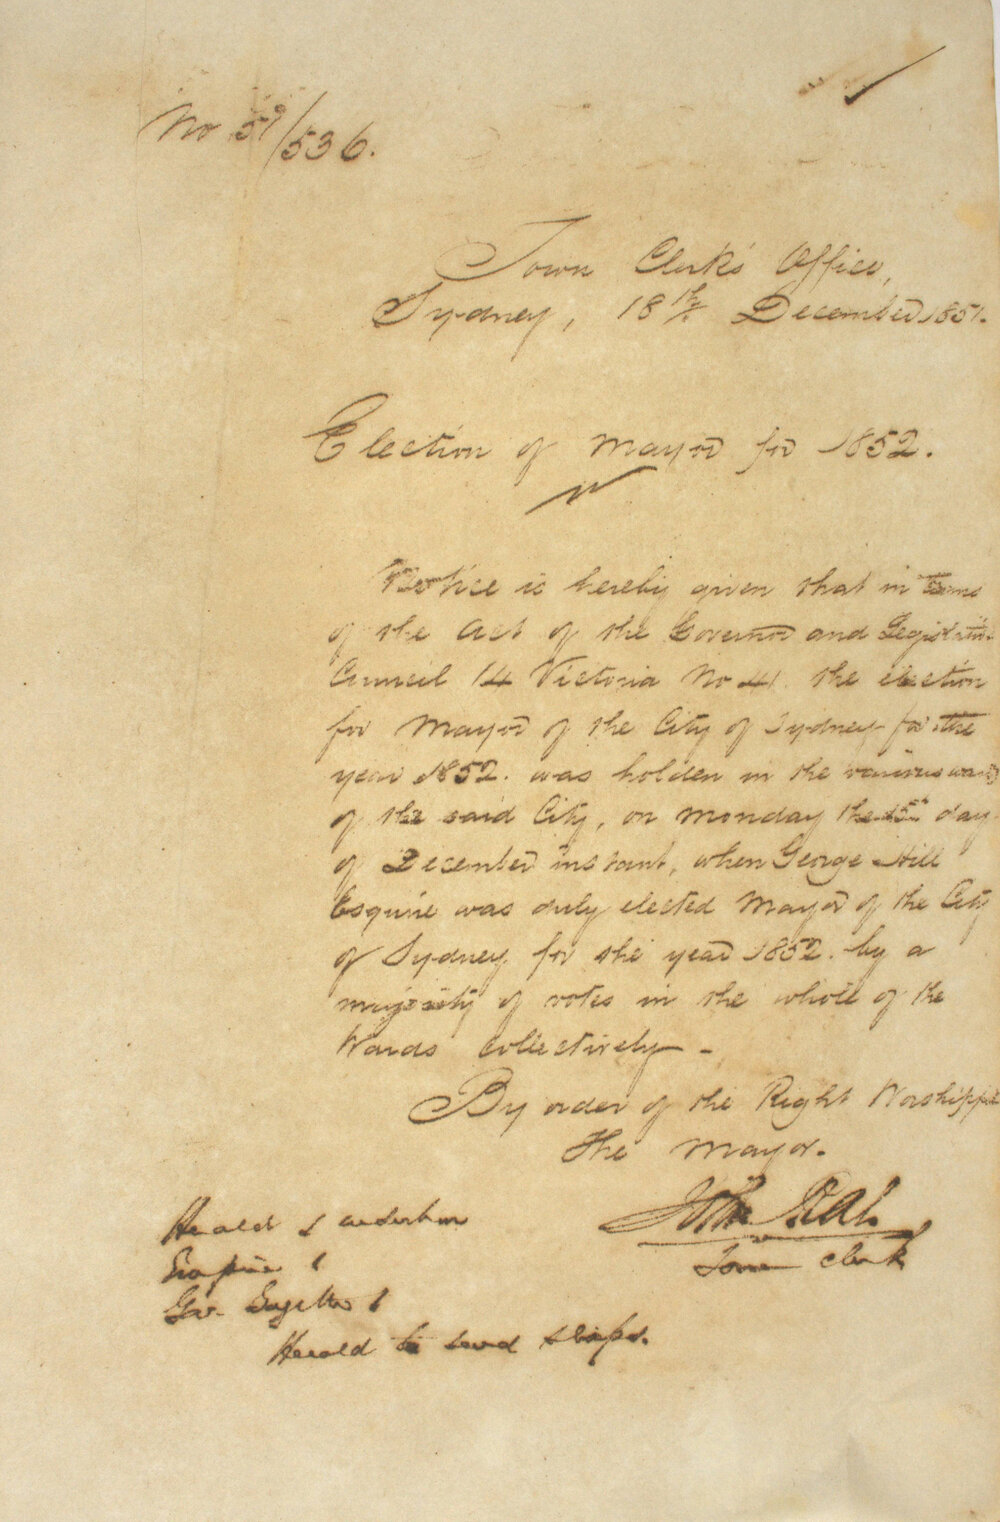 No 51/536.
Town Clerk's Office,
Sydney, 18th December 1851.
Election of Mayor for 1852.
Notice is hereby given that in terms
of the Act of the Governor and Legislative
Council 14 Victoria No 41. the election
for Mayor of the City of Sydney for the
year 1852. was holden in the various wards
of the said City, on Monday the 15th day
of December instant, when George Hill
Esquire was duly elected Mayor of the City
of Sydney for the year 1852. by a
majority of votes in the whole of the
Wards collectively -
By order of the Right Worshipful
The Mayor.
John Rae
Town Clerk
Herald 1 insertion
Empire 1
Gov. Gazette 1
Herald to send slips.